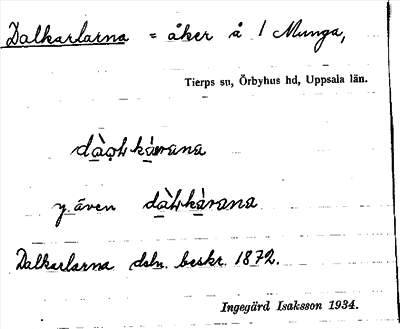 Dalkarlarna = åker å 1 Munga,
Tierps su, Örbyhus hd, Uppsala län.
y. även
Dalkarlarna dsln. beskr. 1872.
Ingegärd Isaksson 1934.